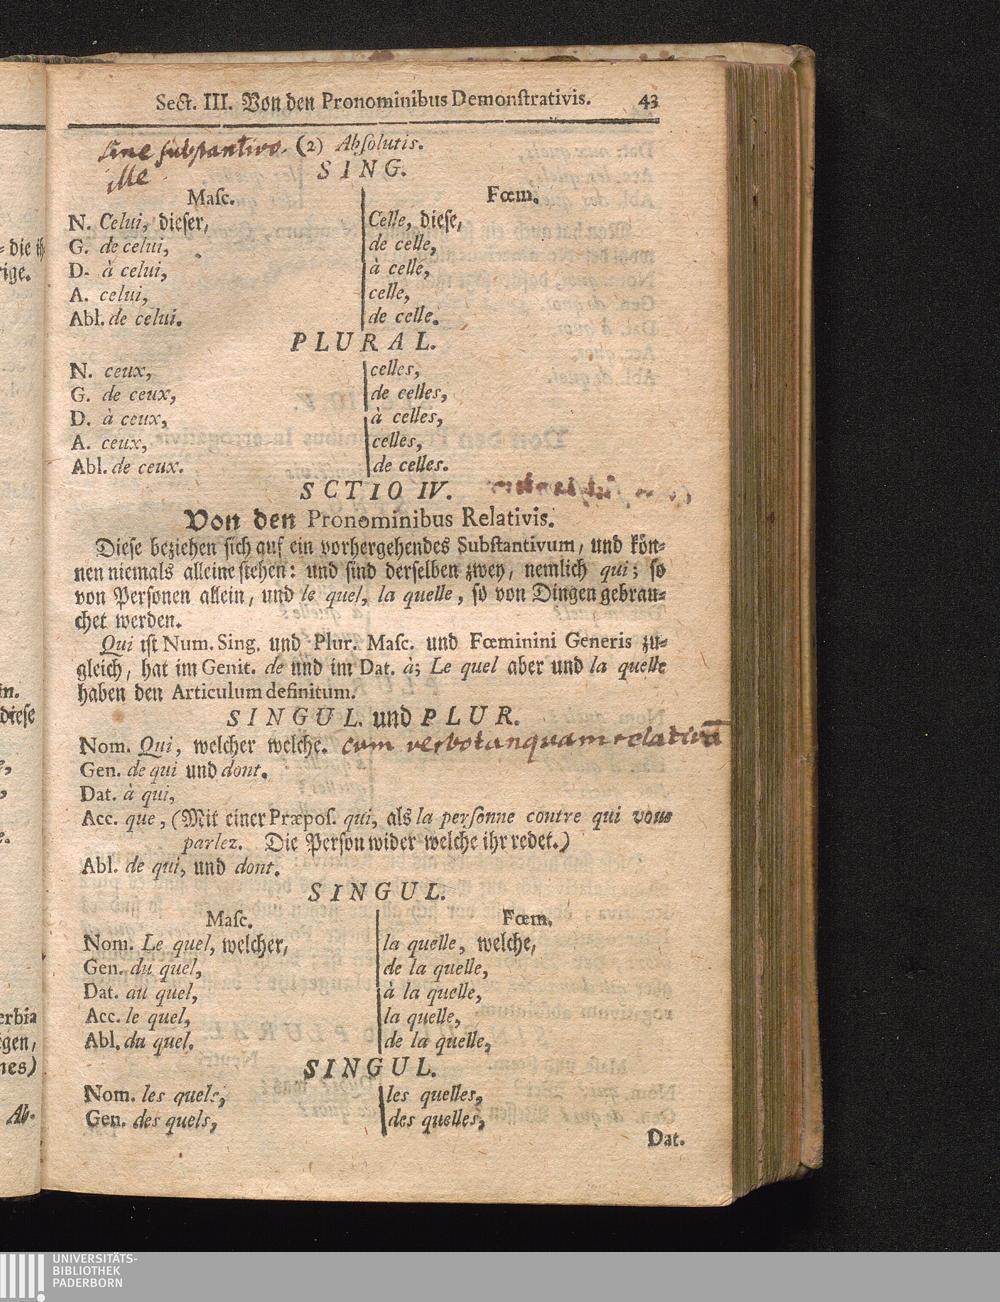 Sect. III. Von den Pronominibus Demonstrativis. 43
sine substantivo. (2) Absolutis.
ille
SING.
Masc. Fœm.
N. Celui, dieser, Celle, diese,
G. de celui, de celle,
D. à celui, à celle,
A. celui, celle,
Abl. de celui. de celle.
PLURAL.
N. ceux, celles,
G. de ceux, de celles,
D. à ceux, à celles,
A. ceux, celles,
Abl. de ceux. de celles.
SCTIO IV.
Von den Pronominibus Relativis.
Diese beziehen sich auf ein vorhergehendes Substantivum, und kön-
nen niemals alleine stehen: und sind derselben zwey, nemlich qui; so
von Personen allein, und le quel, la quelle, so von Dingen gebrau-
chet werden.
Qui ist Num. Sing. und Plur. Masc. und Fœminini Generis zu-
gleich, hat im Genit. de und im Dat. à; Le quel aber und la quelle
haben den Articulum definitum.
SINGUL. und PLUR.
Nom. Qui, welcher welche. cum verbo tanquam relativũ
Gen. de qui und dont.
Dat. à qui,
Acc. que, (Mit einer Præpos. qui, als la personne contre qui vous
parlez. Die Person wider welche ihr redet.)
Abl. de qui, und dont.
SINGUL.
Masc. Fœm.
Nom. Le quel, welcher, la quelle, welche,
Gen. du quel, de la quelle,
Dat. au quel, à la quelle,
Acc. le quel, la quelle,
Abl. du quel. de la quelle,
SINGUL.
Nom. les quels, les quelles,
Gen. des quels, des quelles,
Dat.
UNIVERSITÄTS-
BIBLIOTHEK
PADERBORN